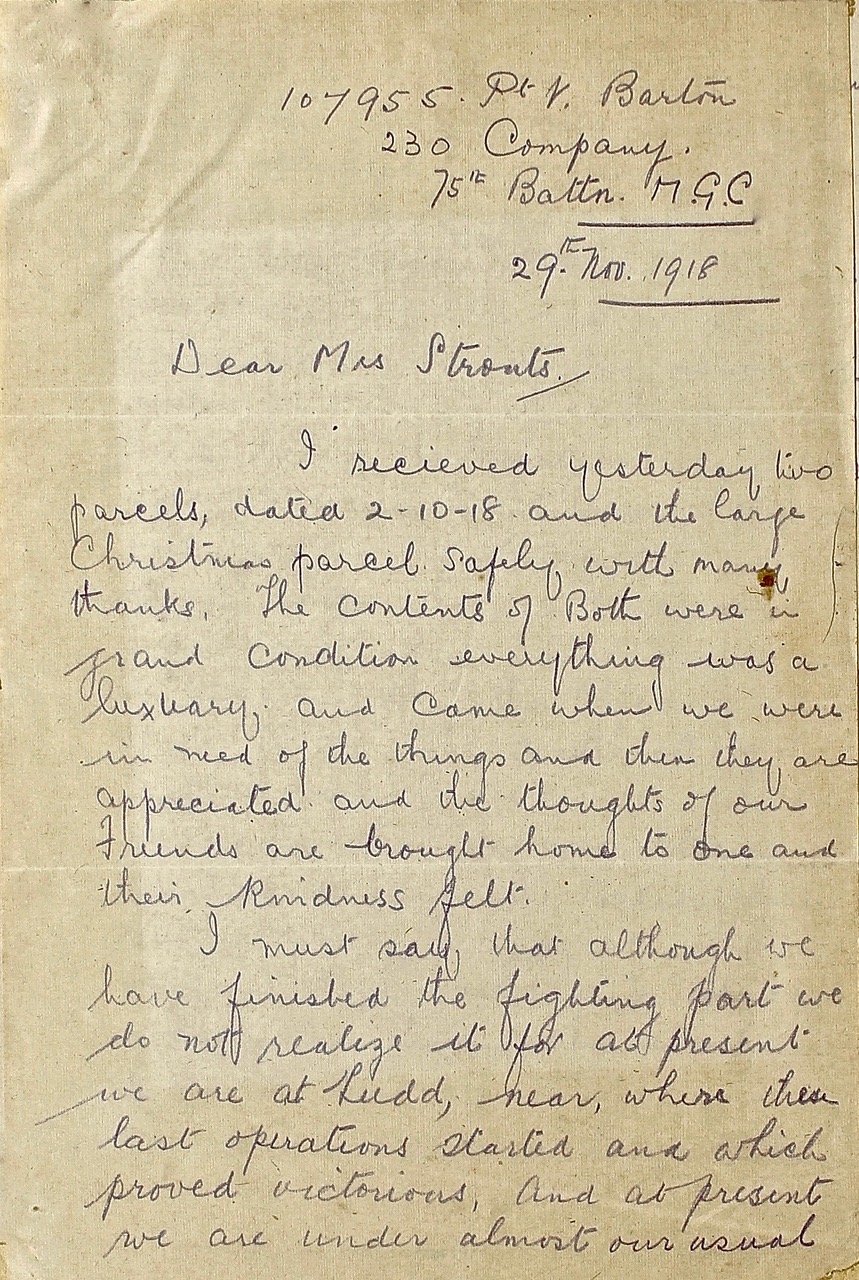 107955. Pt V. Barton
230 Company.
75th Battn. M.G.C
29th Nov. 1918
Dear Mrs Strouts.
I recieved yesterday two
parcels, dated 2-10-18 and the large
Christmas parcel safely, with many
thanks. The contents of Both were in
grand condition everything was a
luxuary, and came when we were
in need of the things and then they are
appreciated and the thoughts of our
Friends are brought home to one and
their kindness felt.
I must say, that although we
have finished the fighting part we
do not realize it for at present
we are at Ludd, near, where these
last operations started and which
proved victorious, And at present
we are under almost our usual